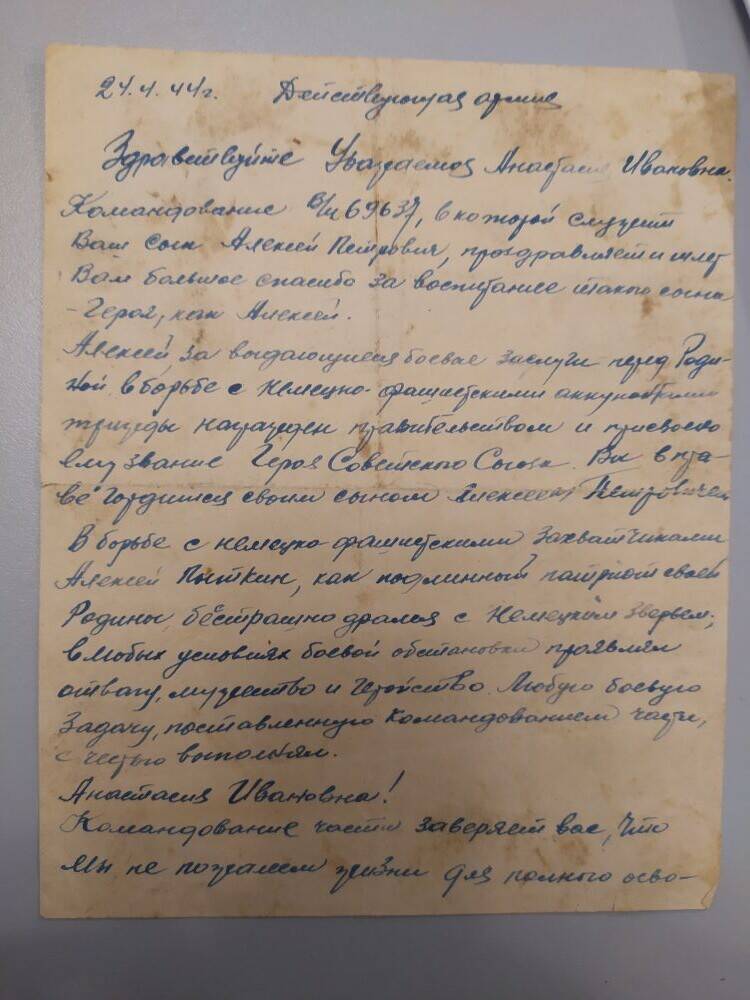 24.4.44г. Действующая армия
Здравствуйте Уважаемая Анастасия Ивановна.
Командование в/ч 69637, в которой служит
Ваш сын Алексей Петрович, поздравляет и шлет
Вам большое спасибо за воспитание такого сына
-Героя, как Алексей.
Алексей, за выдающиеся боевые заслуги перед Роди-
ной в борьбе с немецко-фашистскими
трижды награжден правительством и присвоено
ему звание Героя Советского Союза. Вы в пра-
ве гордиться своим сыном Алексеем Петровичем
В борьбе с немецко-фашистскими захватчиками
Алексей Пыткин, как подлинный патриот своей
Родины, бесстрашно дрался с немецким зверьем,
в любых условиях боевой обстановки проявлял
отвагу, мужество и геройство. Любую боевую
задачу, поставленную командованием части,
с честью выполнял.
Анастасия Ивановна!
Командование части заверяет вас, что
мы не пожалеем жизни для полного осво-